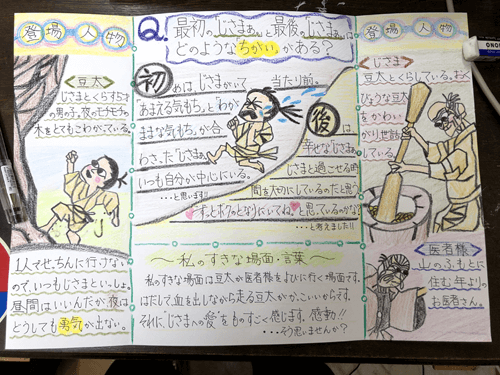 登場人物
<豆太>
じさまとくらす5才
の男の子。夜のモチモチの
木をとてもこわがっている。
1人でせっちんに行けない
ので、いつもじさまといっしょ。
昼間はいいんだが夜は
どうしても勇気が出ない。
Q.最初の「じさまぁ」と最後の「じさまぁ」
どのようなちがいがある?
初めは、じさまがいて 当たり前。
「あまえる気もち」と「わが
ままな気もち」が合
わさった「じさまぁ」
いつも自分が中心にいる。
・・・と思います!!
後は
幸せな「じさまぁ」
じさまと過ごせる時
間を大切にしているのだと思う
「ずっとボクのとなりにいてね」と思っているのかな?
・・・と考えました!!
〜私のすきな場面・言葉〜
私のすきな場面は豆太が医者様をよびに行く場面です。
はだしで血を出しながら走る豆太がかっこいいからです。
それに、"じさまへの愛"をものすごく感じます。感動!!
・・・そう思いませんか?
登場人物
<じさま>
豆太とくらしている。おく
びょうな豆太
をかわい
がり世話
している
<医者様>
山のふもとに
住む年より
のお医者さん。
MONO